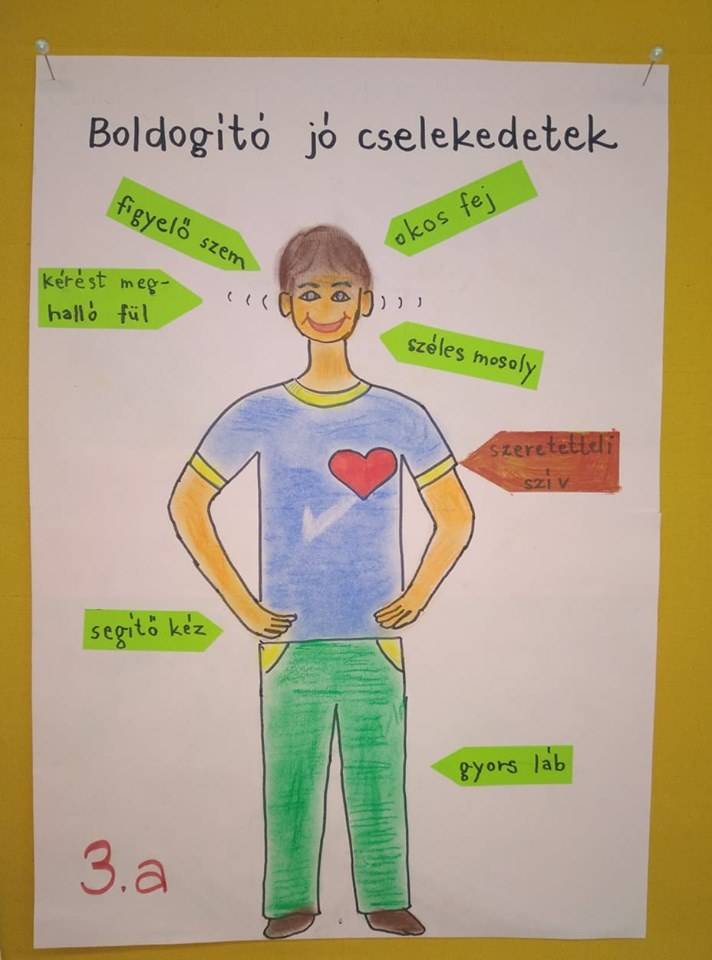 Boldogító jó cselekedetek
figyelő szem
okos fej
kérést meg-
halló fül
széles mosoly
szeretetteli
szív
segítő kéz
gyors láb
3.a